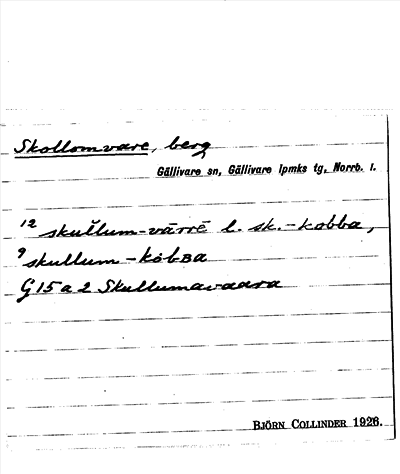 Skollomvare, berg
Gällivare sn, Gällivare lpmks tg, Norrb. l.
12 skullum-vārrē l. sk.-kobba,
9 skullum-kòbʙa
G 15 a 2 Skullumavaara
BJÖRN COLLINDER 1926.